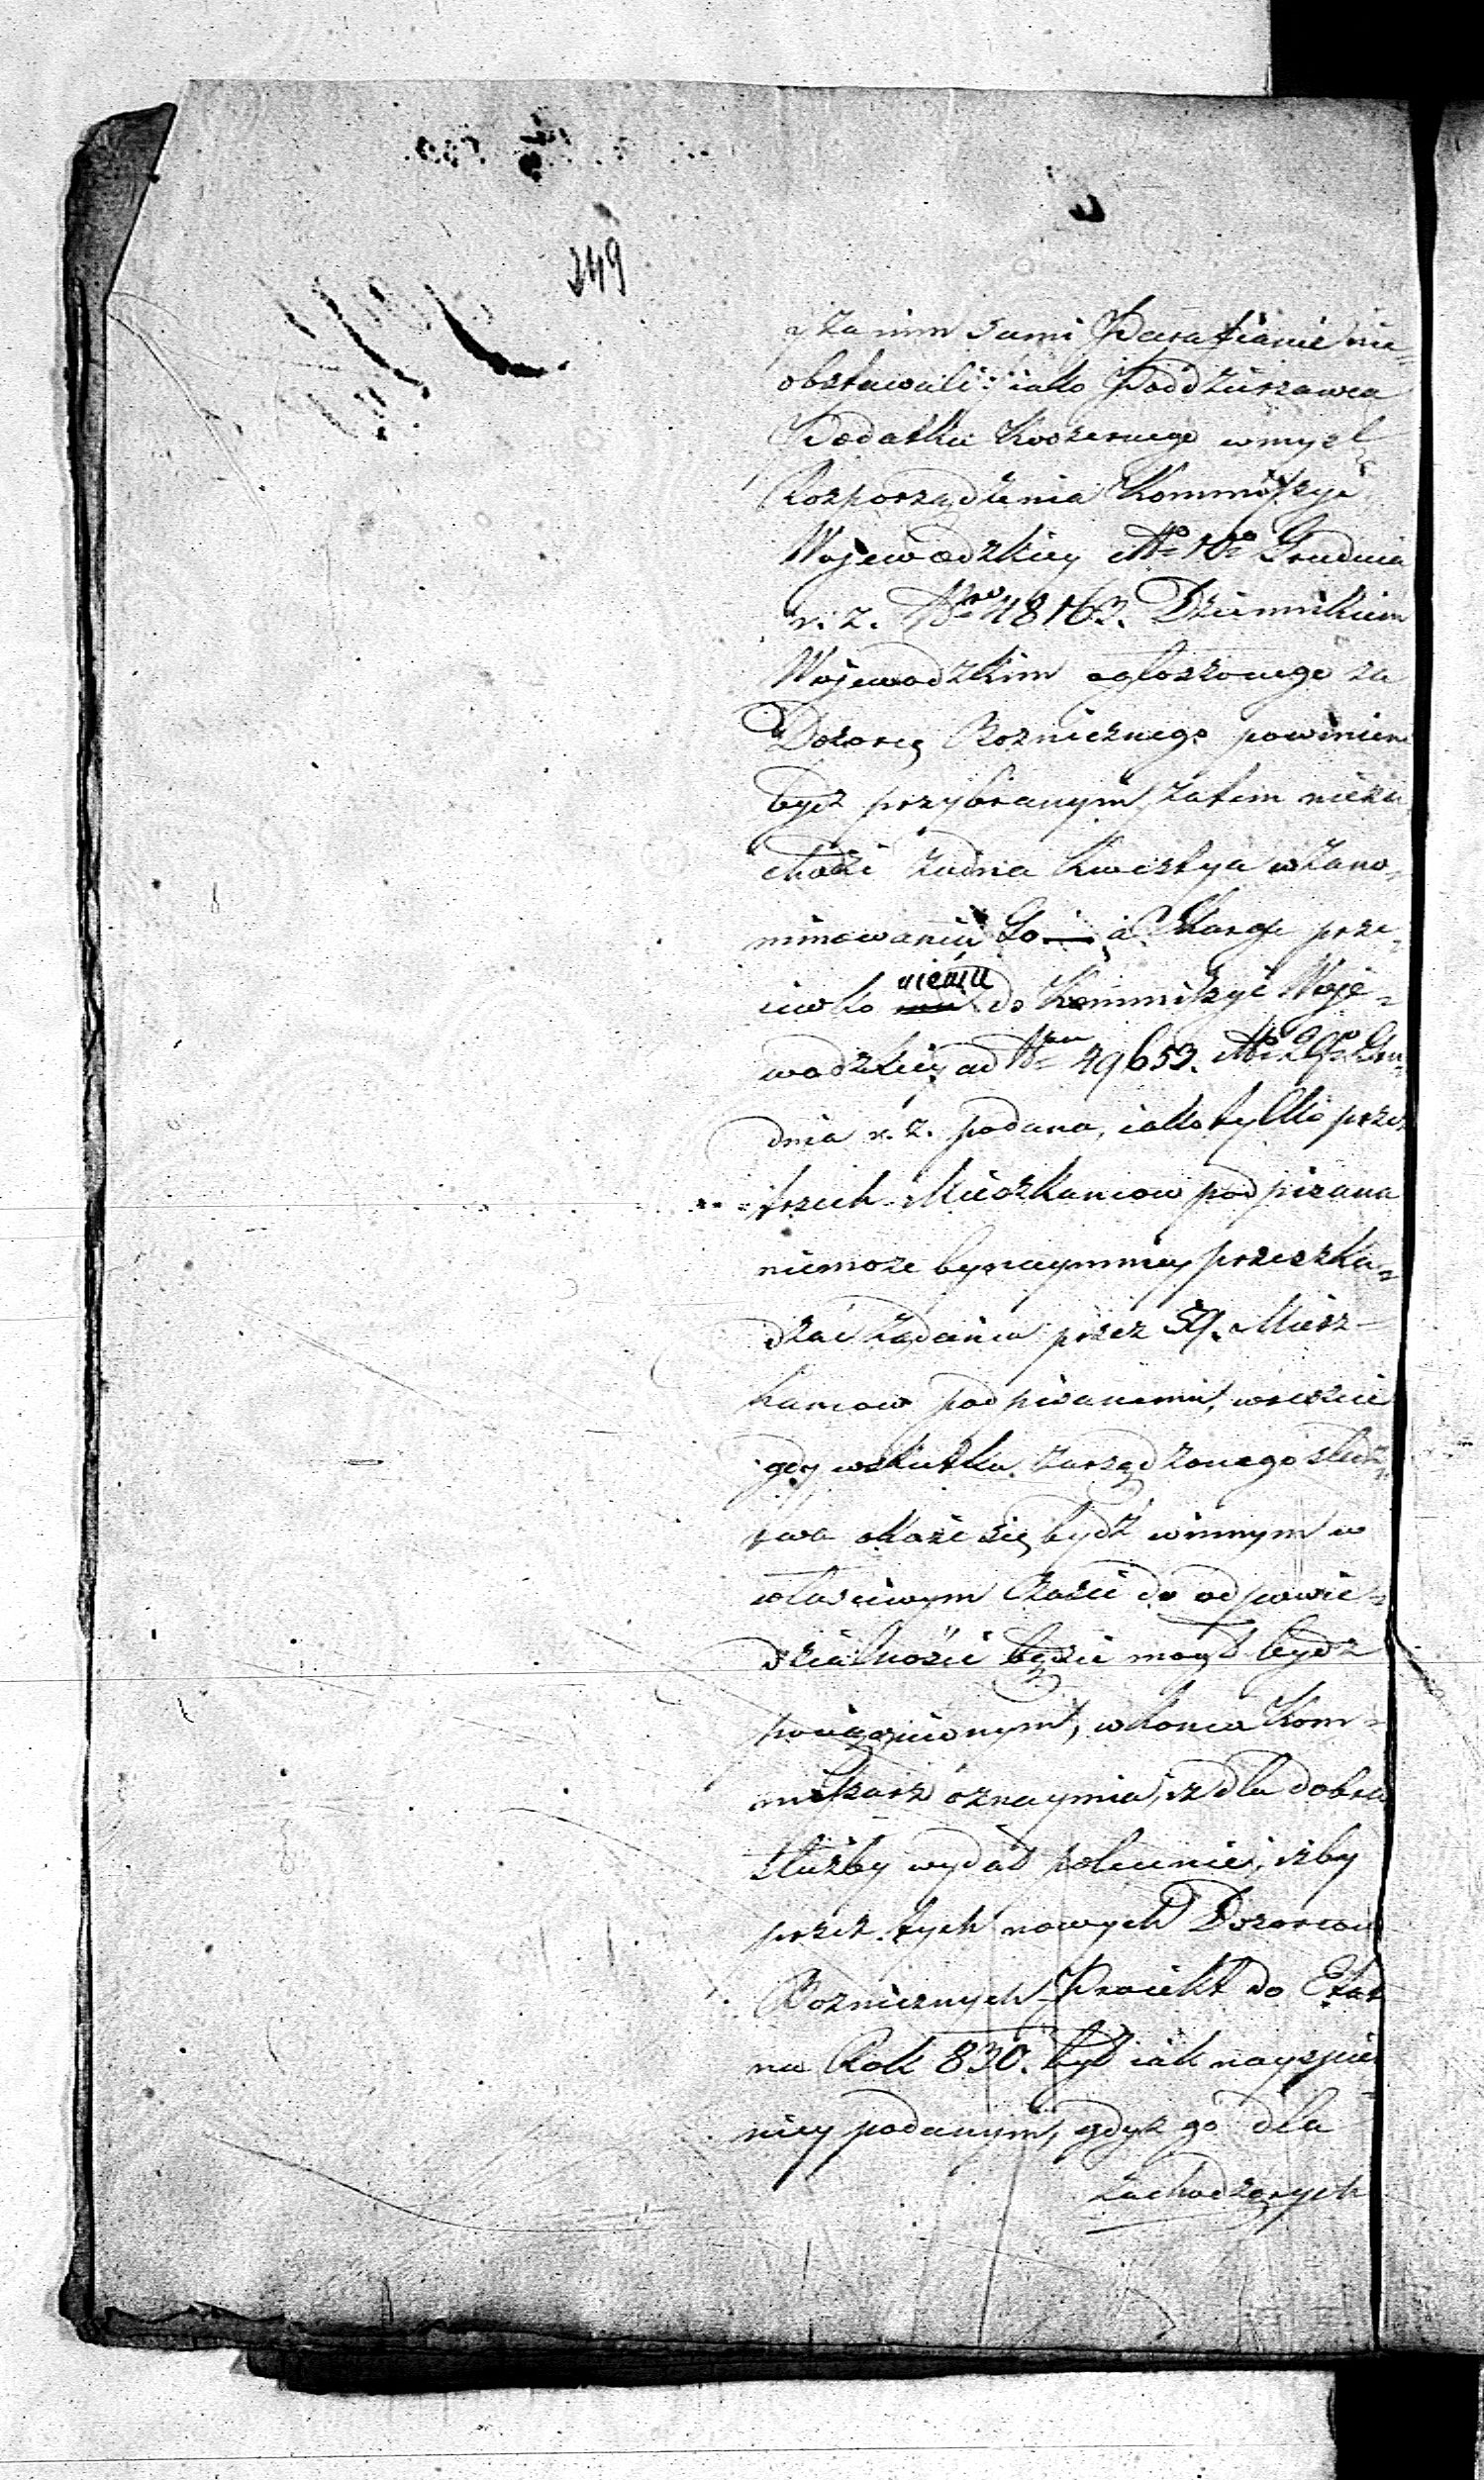 249
a za nim sami Parafianie nie=
obstawali, iako Poddzierzawca
Podatku Koszernego w mysl
Rozporządzenia Kommissyi
Wojewodzkiey Grudnia
r. z. Nro 48163. Dziennikiem
Wojewodzkim ogłoszonego za
Dozorcę Boznicznego powinien
bydz przybranym, zatem nieza
chodzi żadna kwestya w zano=
minowaniu Go, a Skarga prze=
ciwko niemu do Kommissyi Woje=
wodzkiey ad Nrum 49653. Gru=
dnia r. z. podana, iako tylko przez
trzech Mieszkancow podpisana
niemoze bynaymniey przeszka=
dzać żądaniu przez 59. Miesz-
kancow podpisanemu, wreszcie
gdy w skutku zarządzonego sledz=
twa okaże się bydź winnym w
własciwym Czasie do odpowie=
dzialności będzie mogł bydz
pociągnionym, w koncu Kom=
missarz oznaymia, iz dla dobra
Służby wydał polecenie, izby
przez tych nowych Dozorcow
Boznicznych Proiekt do Etat
na Rok 830. był iak nayspie
niey podanym, gdyz go dla
zachodzących